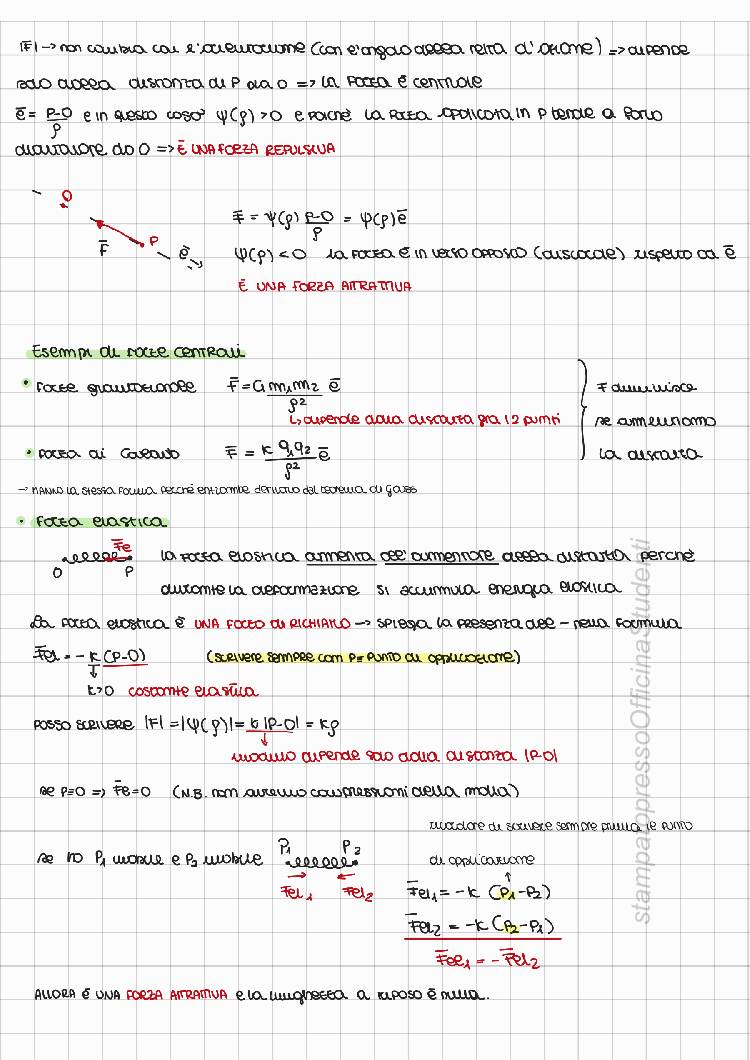 |F| → non cambia con l'orientazione (con l'angolo della retta d'azione) => dipende
solo dalla distanza di P da O => la forza è centrale
ē = P-O/ρ e in questo caso ψ(ρ) > 0 e poiché la forza applicata in P tende a farlo
allontanare da O => È UNA FORZA REPULSIVA
O
F̄ P ē
F̄ = ψ(ρ) P-O/ρ = ψ(ρ) ē
ψ(ρ) < 0 la forza è in verso opposto (discorde) rispetto ad ē
È UNA FORZA ATTRATTIVA
Esempi di forze centrali
• Forze gravitazionale F̄ = G m₁m₂/ρ² ē
↳ dipende dalla distanza fra i 2 punti
• Forza di Coulomb F̄ = k q₁q₂/ρ² ē
F diminuisce
se aumentiamo
la distanza
→ HANNO la stessa forma perché entrambe derivano dal teorema di Gauss
• Forza elastica
F̄e
O P
la forza elastica aumenta all'aumentare della distanza perché
durante la deformazione si accumula energia elastica
La forza elastica è UNA FORZA DI RICHIAMO → spiega la presenza del - nella formula
F̄el = -k (P-O) (SCRIVERE SEMPRE COM P = PUNTO DI APPLICAZIONE)
k>0 costante elastica
POSSO SCRIVERE |F| = |ψ(ρ)| = k |P-O| = kρ
modulo dipende solo dalla distanza |P-O|
se P≡O => F̄e = 0 (N.B. non avremo compressioni della molla)
ricordare di scrivere sempre prima il punto
di applicazione
se ho P₁ mobile e P₂ mobile
P₁ P₂
F̄el₁ F̄el₂
F̄el₁ = -k (P₁-P₂)
F̄el₂ = -k (P₂-P₁)
F̄el₁ = - F̄el₂
ALLORA È UNA FORZA ATTRATTIVA e la lunghezza a riposo è nulla.
stampatopressoOfficinaStudenti